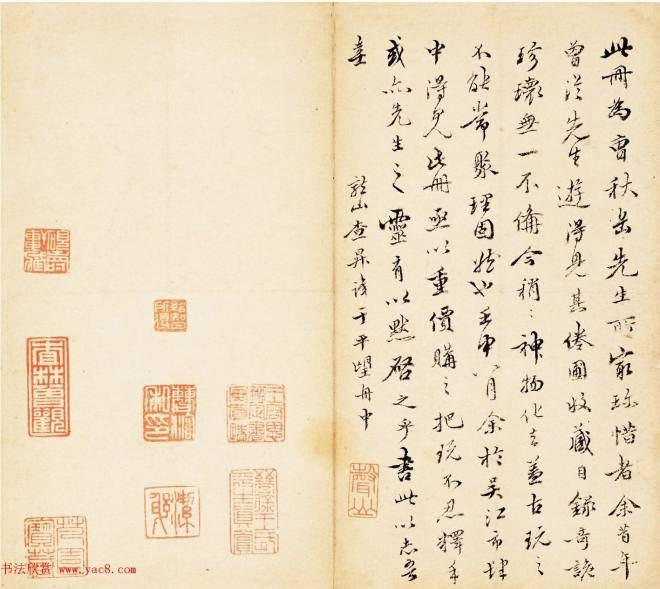 此冊為曹秋岳先生所最珍惜者余昔年
曾從先生遊得見其倦圃收藏目錄奇詭
珍瓌無一不備今稍〻神物化去蓋古玩之
不能常聚理固然也壬申八月余於吳江市肆
中得見此冊亟以重價購〻把玩不忍釋手
或亦先生之靈有以默啓之乎書此以志吾
幸
龍山查昇識于平望舟中
聲山
书法欣赏 www.yac8.com